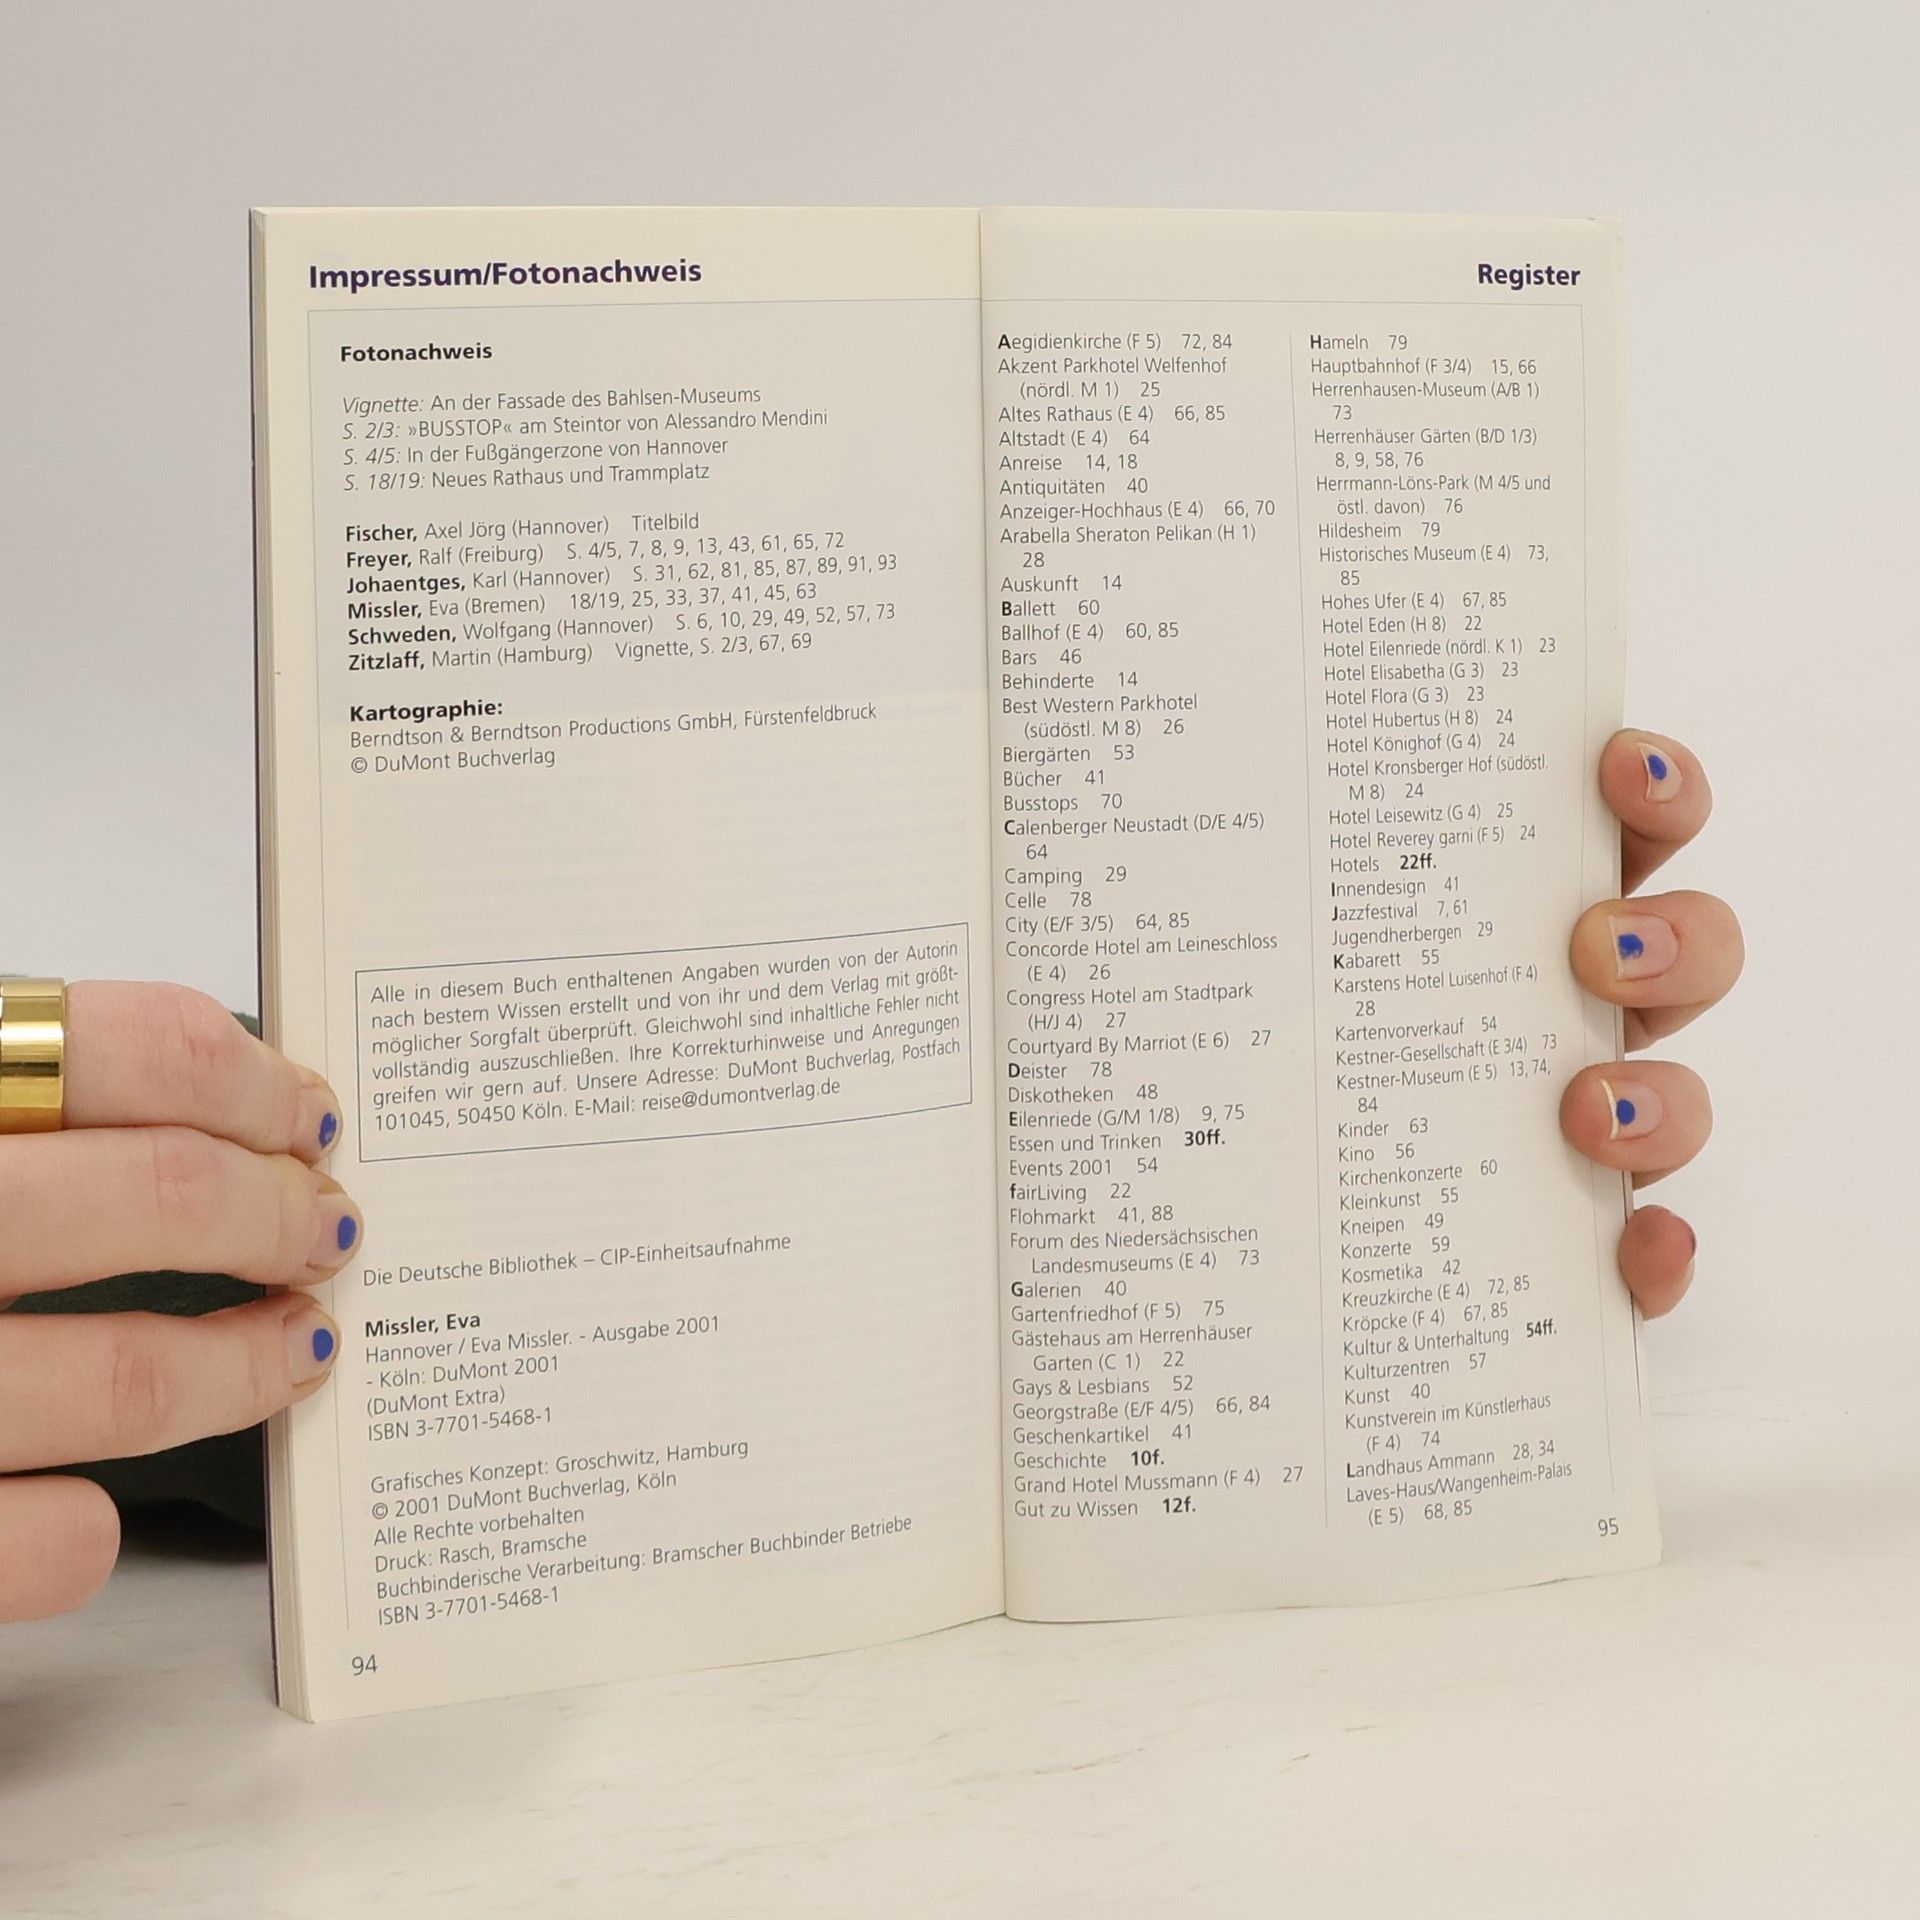 Impressum/Fotonachweis
Fotonachweis
Vignette: An der Fassade des Bahlsen-Museums
S. 2/3: »BUSSTOP« am Steintor von Alessandro Mendini
S. 4/5: In der Fußgängerzone von Hannover
S. 18/19: Neues Rathaus und Trammplatz
Fischer, Axel Jörg (Hannover) Titelbild
Freyer, Ralf (Freiburg) S. 4/5, 7, 8, 9, 13, 43, 61, 65, 72
Johaentges, Karl (Hannover) S. 31, 62, 81, 85, 87, 89, 91, 93
Missler, Eva (Bremen) 18/19, 25, 33, 37, 41, 45, 63
Schweden, Wolfgang (Hannover) S. 6, 10, 29, 49, 52, 57, 73
Zitzlaff, Martin (Hamburg) Vignette, S. 2/3, 67, 69
Kartographie:
Berndtson & Berndtson Productions GmbH, Fürstenfeldbruck
© DuMont Buchverlag
Alle in diesem Buch enthaltenen Angaben wurden von der Autorin
nach bestem Wissen erstellt und von ihr und dem Verlag mit größt-
möglicher Sorgfalt überprüft. Gleichwohl sind inhaltliche Fehler nicht
vollständig auszuschließen. Ihre Korrekturhinweise und Anregungen
greifen wir gern auf. Unsere Adresse: DuMont Buchverlag, Postfach
101045, 50450 Köln. E-Mail: reise@dumontverlag.de
Die Deutsche Bibliothek – CIP-Einheitsaufnahme
Missler, Eva
Hannover / Eva Missler. - Ausgabe 2001
- Köln: DuMont 2001
(DuMont Extra)
ISBN 3-7701-5468-1
Grafisches Konzept: Groschwitz, Hamburg
© 2001 DuMont Buchverlag, Köln
Alle Rechte vorbehalten
Druck: Rasch, Bramsche
Buchbinderische Verarbeitung: Bramscher Buchbinder Betriebe
ISBN 3-7701-5468-1
94
Register
Aegidienkirche (F 5) 72, 84
Akzent Parkhotel Welfenhof
(nördl. M 1) 25
Altes Rathaus (E 4) 66, 85
Altstadt (E 4) 64
Anreise 14, 18
Antiquitäten 40
Anzeiger-Hochhaus (E 4) 66, 70
Arabella Sheraton Pelikan (H 1)
28
Auskunft 14
Ballett 60
Ballhof (E 4) 60, 85
Bars 46
Behinderte 14
Best Western Parkhotel
(südöstl. M 8) 26
Biergärten 53
Bücher 41
Busstops 70
Calenberger Neustadt (D/E 4/5)
64
Camping 29
Celle 78
City (E/F 3/5) 64, 85
Concorde Hotel am Leineschloss
(E 4) 26
Congress Hotel am Stadtpark
(H/J 4) 27
Courtyard By Marriot (E 6) 27
Deister 78
Diskotheken 48
Eilenriede (G/M 1/8) 9, 75
Essen und Trinken 30ff.
Events 2001 54
fairLiving 22
Flohmarkt 41, 88
Forum des Niedersächsischen
Landesmuseums (E 4) 73
Galerien 40
Gartenfriedhof (F 5) 75
Gästehaus am Herrenhäuser
Garten (C 1) 22
Gays & Lesbians 52
Georgstraße (E/F 4/5) 66, 84
Geschenkartikel 41
Geschichte 10f.
Grand Hotel Mussmann (F 4) 27
Gut zu Wissen 12f.
Hameln 79
Hauptbahnhof (F 3/4) 15, 66
Herrenhausen-Museum (A/B 1)
73
Herrenhäuser Gärten (B/D 1/3)
8, 9, 58, 76
Herrmann-Löns-Park (M 4/5 und
östl. davon) 76
Hildesheim 79
Historisches Museum (E 4) 73,
85
Hohes Ufer (E 4) 67, 85
Hotel Eden (H 8) 22
Hotel Eilenriede (nördl. K 1) 23
Hotel Elisabetha (G 3) 23
Hotel Flora (G 3) 23
Hotel Hubertus (H 8) 24
Hotel Könighof (G 4) 24
Hotel Kronsberger Hof (südöstl.
M 8) 24
Hotel Leisewitz (G 4) 25
Hotel Reverey garni (F 5) 24
Hotels 22ff.
Innendesign 41
Jazzfestival 7, 61
Jugendherbergen 29
Kabarett 55
Karstens Hotel Luisenhof (F 4)
28
Kartenvorverkauf 54
Kestner-Gesellschaft (E 3/4) 73
Kestner-Museum (E 5) 13, 74,
84
Kinder 63
Kino 56
Kirchenkonzerte 60
Kleinkunst 55
Kneipen 49
Konzerte 59
Kosmetika 42
Kreuzkirche (E 4) 72, 85
Kröpcke (F 4) 67, 85
Kultur & Unterhaltung 54ff.
Kulturzentren 57
Kunst 40
Kunstverein im Künstlerhaus
(F 4) 74
Landhaus Ammann 28, 34
Laves-Haus/Wangenheim-Palais
(E 5) 68, 85
95